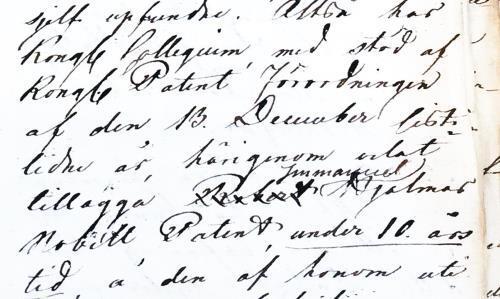 sjelf upfundne. Altså har
Kongl Collegium, med stöd af
Kongl Patent Förordningen
af den 13. December sist-
lidne år, härigenom velat
Immanuel
tillägga Hjalmar
Nobill Patent, under 10. års
tid å den af honom